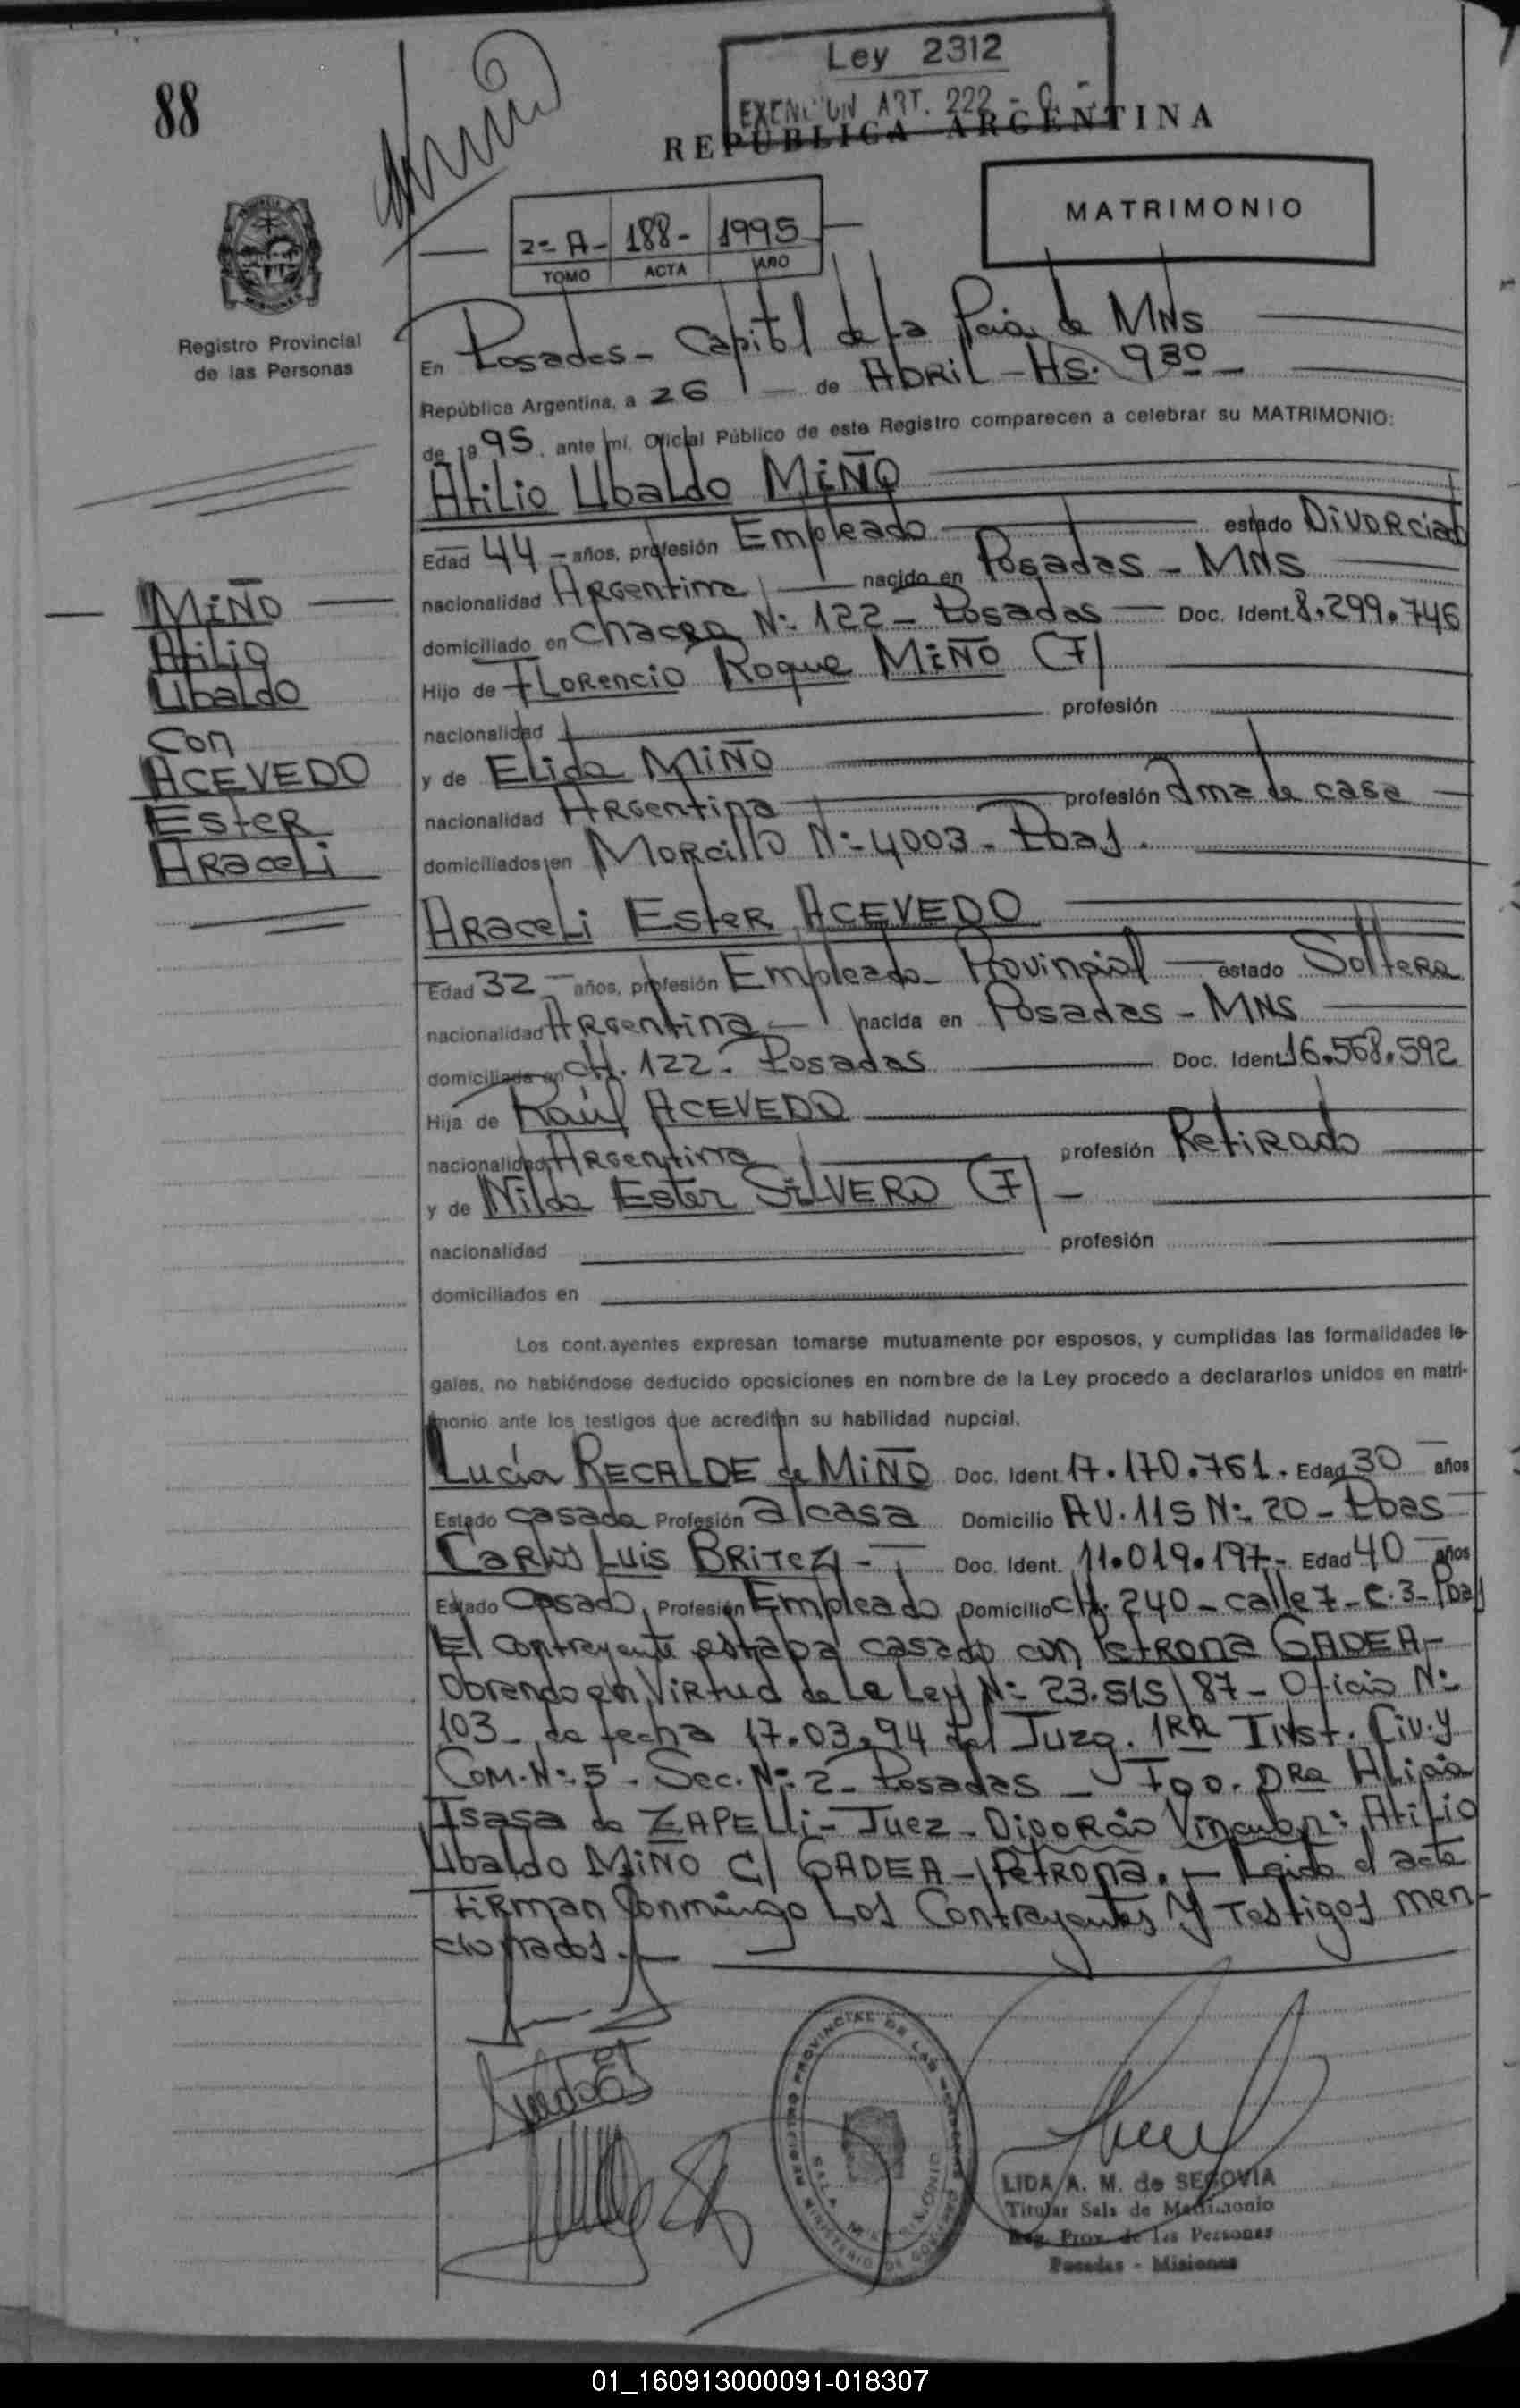 88
Ley 2312
EXENCION ART. 222 - 0 -
REPUBLICA ARGENTINA
MATRIMONIO
2º A- 188- 1995
TOMO ACTA AÑO
Registro Provincial
de las Personas
En Posadas - Capital de La Pcia. de MNS
República Argentina, a 26 — de ABRIL - HS. 9 30 -
de 19 95, ante mí, Oficial Público de este Registro comparecen a celebrar su MATRIMONIO:
Atilio Ubaldo MIÑO
Edad 44 - años, profesión Empleado estado Divorciado
nacionalidad Argentina — nacido en Posadas - MNS
domiciliado en Chacra Nº 122 - Posadas — Doc. Ident. 8.299.746
Hijo de Florencio Roque MIÑO (F)
nacionalidad profesión
y de Elida MIÑO
nacionalidad Argentina profesión Ama de casa
domiciliados en Morcillo Nº 4003 - Pdas.
MIÑO
Atilio
Ubaldo
Con
ACEVEDO
Ester
Araceli
Araceli Ester ACEVEDO
Edad 32 - años, profesión Empleada Provincial — estado Soltera
nacionalidad Argentina — nacida en Posadas - MNS
domiciliada en CH. 122 - Posadas Doc. Ident. 16.568.592
Hija de Raúl ACEVEDO
nacionalidad Argentina profesión Retirado
y de Nilda Ester SILVERO (F) -
nacionalidad profesión
domiciliados en
Los cont.ayentes expresan tomarse mutuamente por esposos, y cumplidas las formalidades le-
gales, no habiéndose deducido oposiciones en nombre de la Ley procedo a declararlos unidos en matri-
monio ante los testigos que acreditan su habilidad nupcial.
Lucía RECALDE de MIÑO Doc. Ident. 17.170.761. Edad 30 años
Estado casada Profesión a/casa Domicilio AV. 115 Nº 20 - Pdas
Carlos Luis BRITEZ - Doc. Ident. 11.019.197- Edad 40 años
Estado Casado, Profesión Empleado Domicilio CH. 240 - calle 7 - C. 3 - Pdas
El contrayente estaba casado con Petrona GADEA -
Obrando en Virtud de La Ley Nº 23.515/87 - Oficio Nº
103 - de fecha 17.03.94 del Juzg. 1RA Inst. Civ. y
Com. Nº 5 - Sec. Nº 2 - Posadas - Fdo. DRA Alicia
Isasa de ZAPELLi - Juez - Divorcio Vincular: Atilio
Ubaldo MIÑO C/ GADEA - Petrona. - Leida el acta
Firman Conmigo Los Contrayentes Y Testigos men-
cionados.
REGISTRO PROVINCIAL DE LAS PERSONAS
MINISTERIO DE GOBIERNO
SALA MATRIMONIO
LIDA A. M. de SEGOVIA
Titular Sala de Matrimonio
Reg. Prov. de las Personas
Posadas - Misiones
01_160913000091-018307